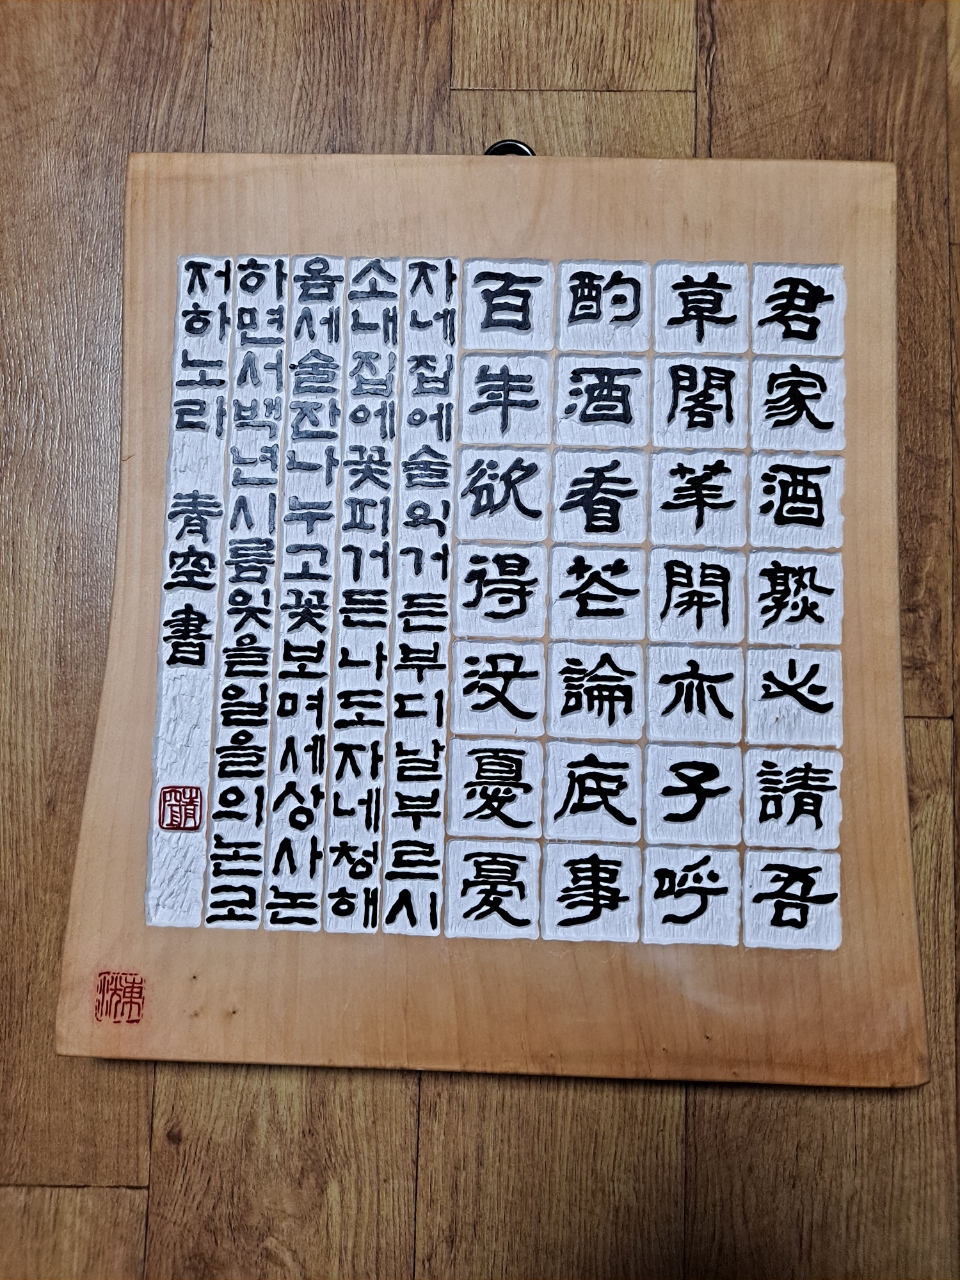 君家酒熟必請吾
草閣華開亦子呼
酌酒看花論底事
百年欲得没憂憂
자네집에술익거든부디날부르시
소내집에꽃피거든나도자네청해
옴세술잔나누고꽃보며세상사논
하면서백년시름잊을일을의논코
저하노라 靑空書